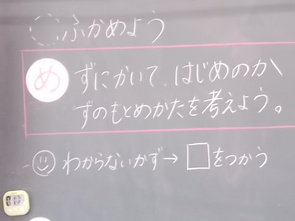 ふかめよう
め ずにかいて、はじめのか
ずのもとめかたを考えよう。
わからないかず→□をつかう